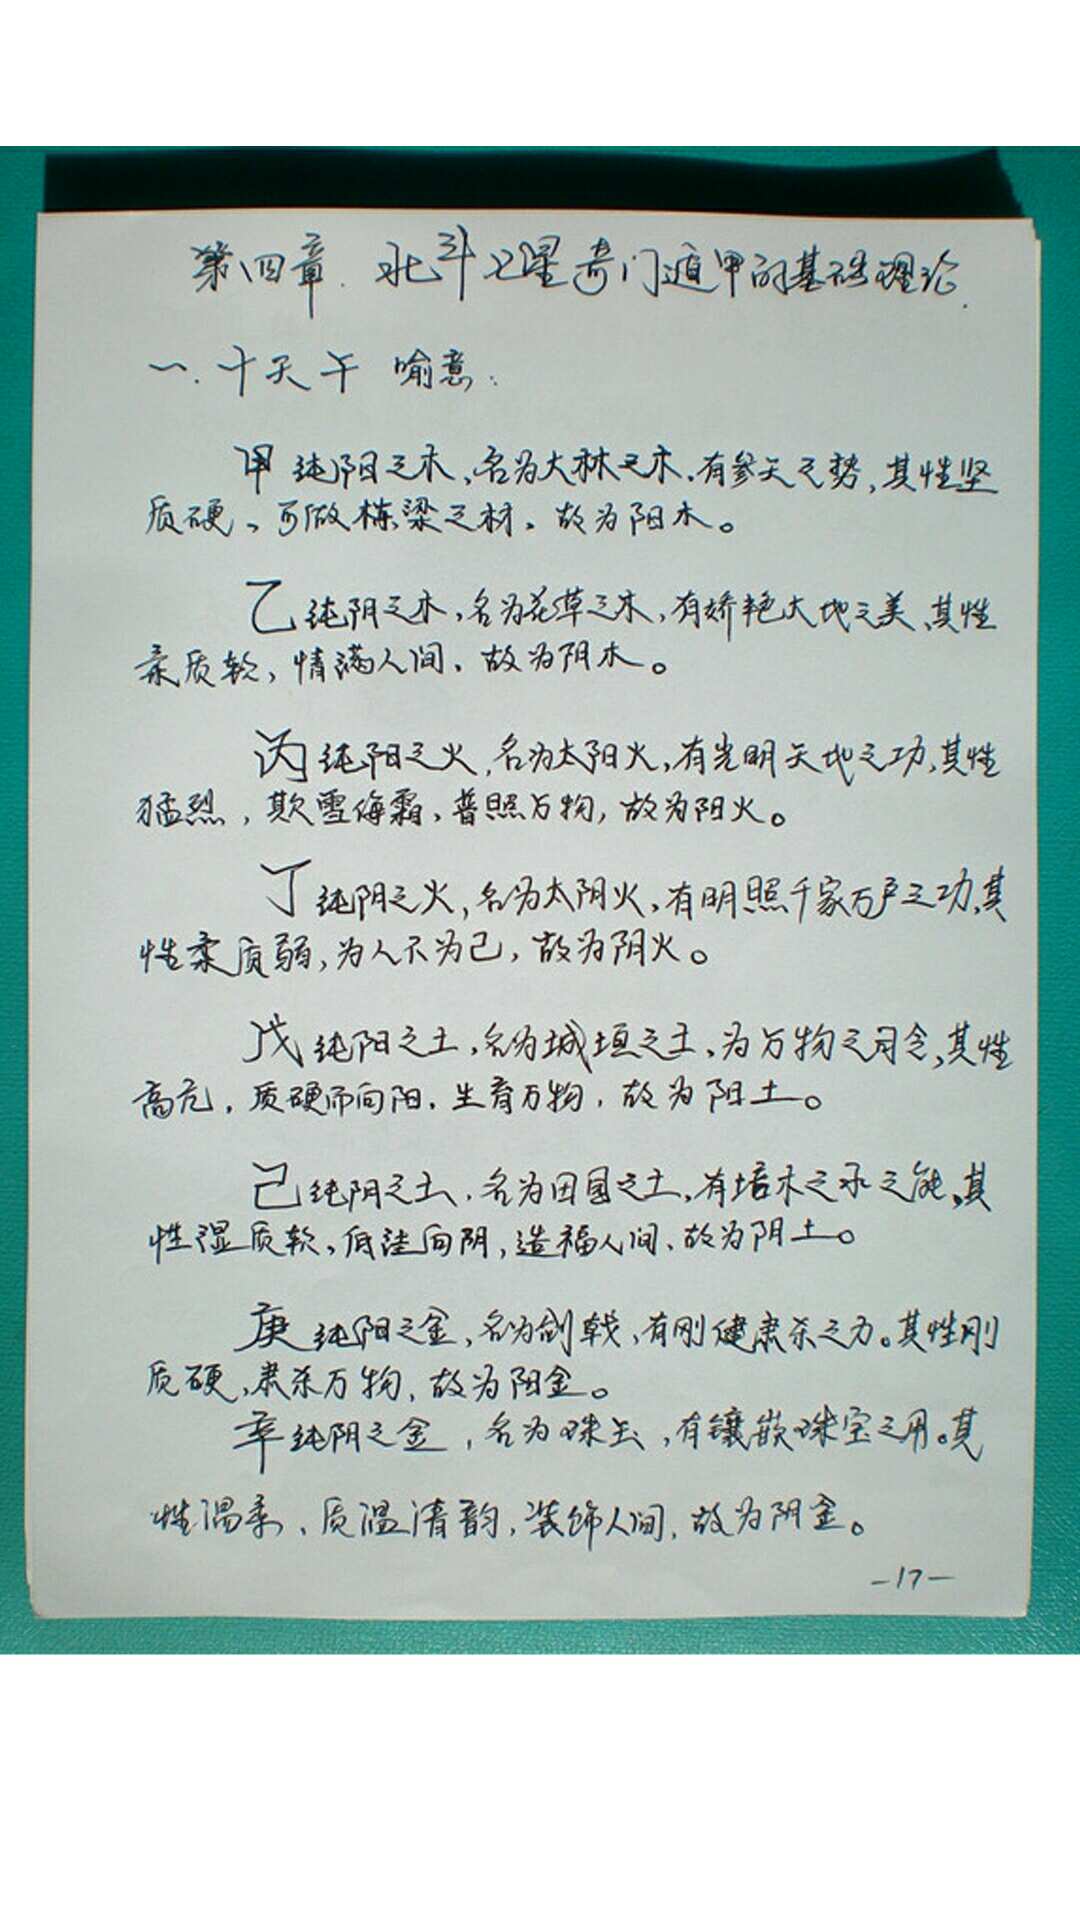 第四章. 北斗卫星奇门遁甲的基础理论.
一. 十天干 喻意:
甲纯阳之木,名为大林之木.有参天之势,其性坚
质硬,可做栋梁之材,故为阳木。
乙纯阴之木,名为花草之木,有娇艳大地之美,其性
柔质软,情满人间,故为阴木。
丙纯阳之火,名为太阳火,有光明天地之功,其性
猛烈,欺雪侮霜,普照万物,故为阳火。
丁纯阴之火,名为太阴火,有明照千家万户之功,其
性柔质弱,为人不为己,故为阴火。
戊纯阳之土,名为城垣之土,为万物之司令,其性
高亢,质硬而向阳,生育万物,故为阳土。
己纯阴之土,名为田园之土,有培木之水之能,其
性湿质软,低洼向阴,造福人间,故为阴土。
庚纯阳之金,名为剑戟,有刚健肃杀之力。其性刚
质硬,肃杀万物,故为阳金。
辛纯阴之金,名为珠玉,有镶嵌珠宝之用。其
性温柔,质温清韵,装饰人间,故为阴金。
-17-